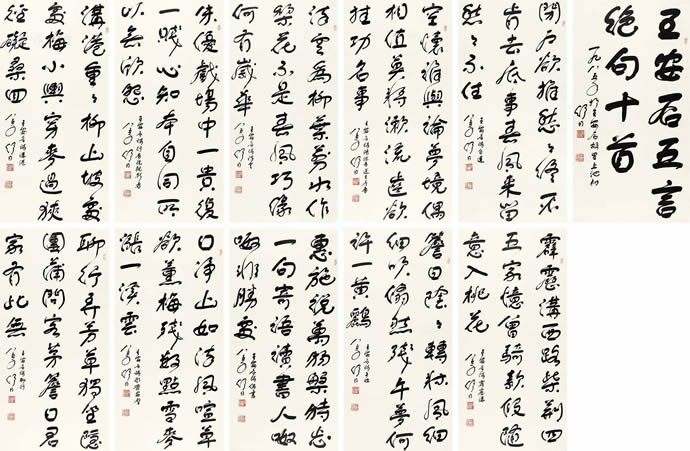 王安石五言
绝句十首
一九八五年於王安石故里上池村
閉户欲推愁〻終不
肯去底事春風来留
愁〻不住
王安石诗自遣
空懷誰與論夢境偶
相值莫将漱流齒欲
挂功名事
染雲為柳葉剪水作
梨花不是春風巧緣
何有歲華
侏優戲場中一貴復
一賤心知本自同所
以無欣怨
溝港重〻柳山坡處
處梅小輿穿麥過狹
徑礙桑回
霹靂溝西路柴荆四
五家憶曾騎款段隨
意入桃花
簷日陰〻轉牀風細
細吹翛然殘午夢何
許一黄鸝
惠施說萬物槃特忘
一句寄語讀書人呶
呶非勝處
日淨山如染風暄草
欲薰梅殘數點雪麥
漲一溪雲
聊行弄芳草獨坐隱
團蒲問客茅簷日君
家有此無